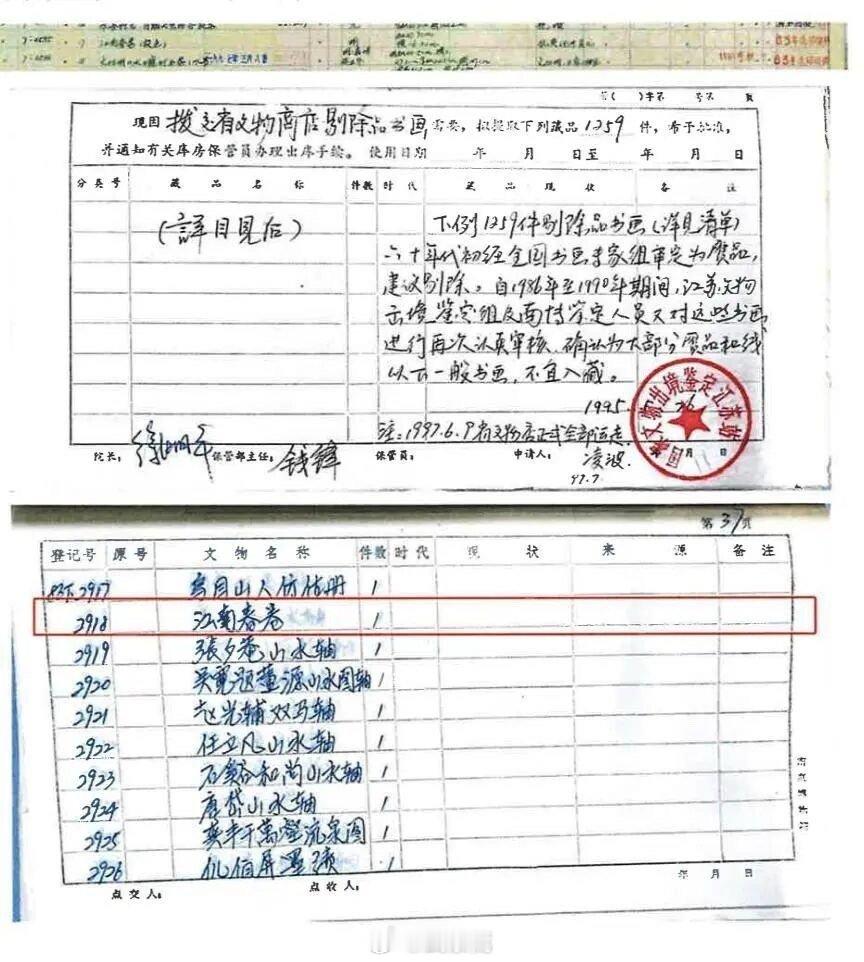 江南春卷(设色)
63年选印资料
一九九七年三月八日
63年选印资料
第( )字第 号第 页
现因 拨交省文物商店剔除品书画 需要,拟提取下列藏品1259件,希予批准,
并通知有关库房保管员办理出库手续。使用日期 年 月 日至 年 月 日
分类号 藏品名称 件数 时代 藏品现状 备注
(詳目见后)
下例1259件剔除品书画(详见清单)
六十年代初经全国书画专家组审定为赝品,
建议剔除。自1986年至1990年期间,江苏文物
出境鉴定组及南博鉴定人员又对这些书画
进行再次认真审核,确认为大部分赝品和线
以下一般书画,不宜入藏。
1995 26
注:1997.6.9省文物店正式全部运走
院长: 徐湖平 保管部主任: 钱锋 保管员: 申请人: 凌波 月 日
97.7
国家文物出境鉴定江苏站
第37页
登记号 原号 文物名称 件数 时代 现状 来源 备注
2917 1
2918 江南春卷 1
2919 張夕菴山水轴 1
2920 吴寛题董源山水图轴 1
2921 赵光辅双马轴 1
2922 任立凡山水轴 1
2923 石谿和尚山水轴 1
2924 唐岱山水轴 1
2925 萬壑流泉图 1
2926 1
点交人: 点收人: 年 月 日